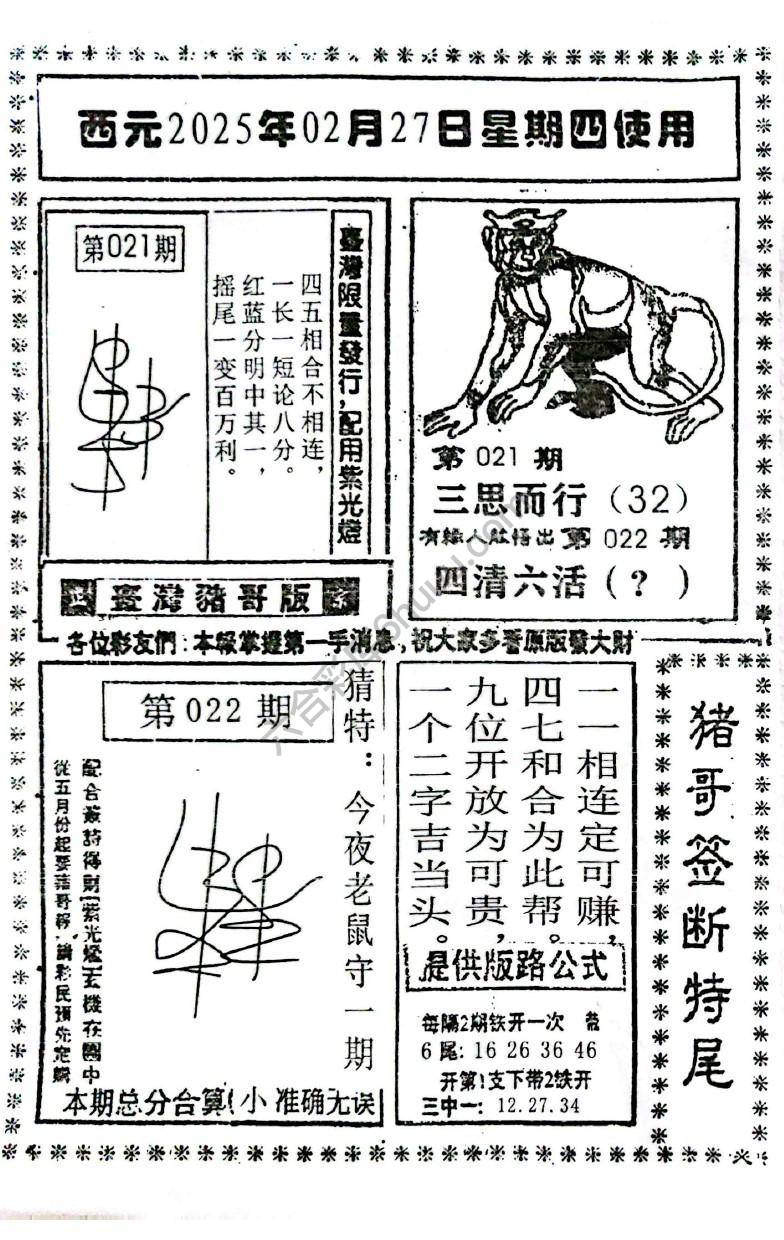 西元2025年02月27日星期四使用
第021期
臺灣限量發行,配用紫光燈
四五相合不相连,
一长一短论八分。
红蓝分明中其一,
摇尾一变百万利。
第 021 期
三思而行（32）
有緣人能悟出 第 022 期
四清六活（？）
臺灣豬哥版
各位彩友們:本報掌握第一手消息,祝大家多看原版發大財
第 022 期
猜特:今夜老鼠守一期
從五月份起要豬哥報,請彩民預先定購
本期总分合算(小 准确无误
一一相连定可赚,
四七和合为此帮。
九位开放为可贵,
一个二字吉当头。
提供版路公式
每隔2期铁开一次
6 尾: 16 26 36 46
开第1支下带2铁开
三中一: 12.27.34
猪哥签断特尾
六合彩库6huwu.com